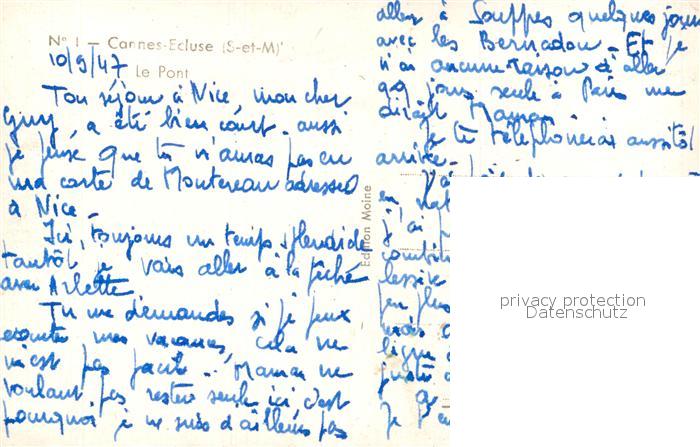 N° 1 — Cannes-Ecluse (S-et-M)
10/9/47 Le Pont
Ton séjour à Nice, mon cher
Guy, a été bien court. aussi
je peux que tu n'auras pas eu
ma carte de Montereau adressée
à Nice —
Ici, toujours un temps splendide
tantôt je vais aller à la pêche
avec Arlette
Tu me demandes si je peux
écourter mes vacances, cela ne
m'est pas facile. Maman ne
voulant pas rester seule ici, c'est
pourquoi je ne suis d'ailleurs pas
allée à Souppes quelques jours
avec les Bernadou — Et je
n'ai aucune raison d'aller
qq jours seule à Paris me
dirait Maman.
Je te téléphonerai aussitôt
arrivée —
en
j'ai
lessive
plus
mais
ligne
juste
Je
Edition Moine
privacy protection
Datenschutz